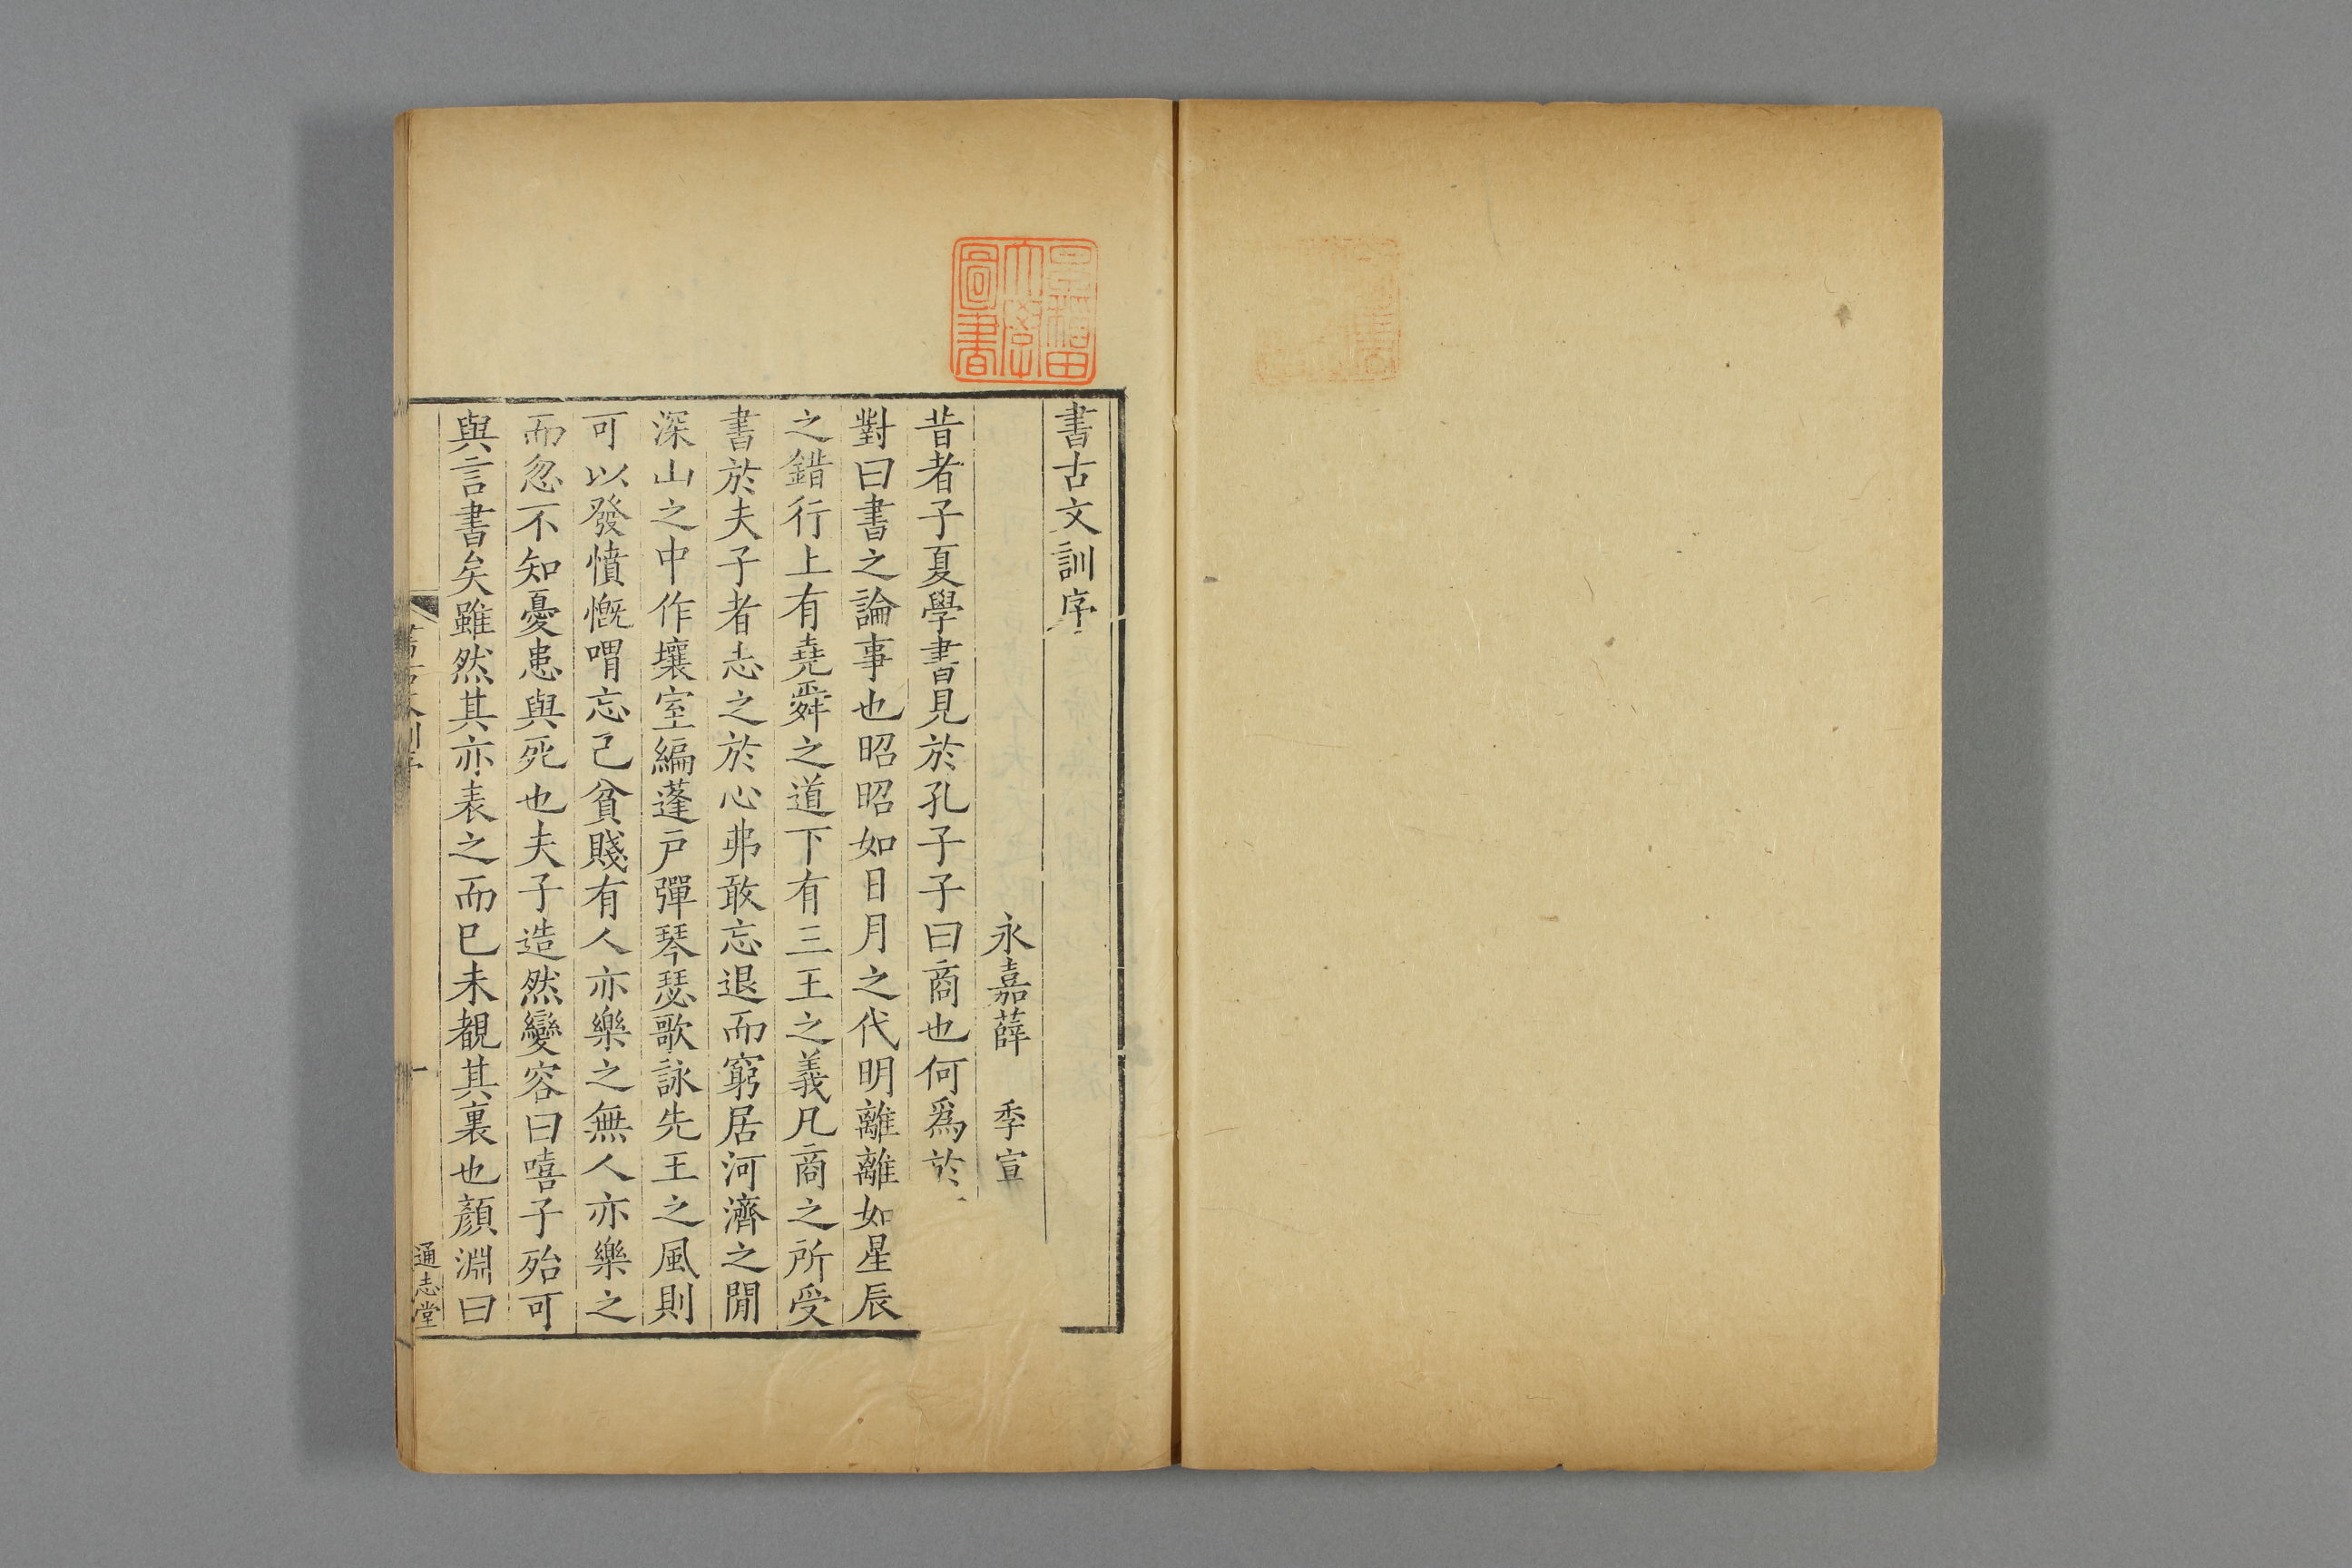 書古文訓序
永嘉薛 季宣
昔者子夏學書見於孔子子曰商也何爲於
對曰書之論事也昭昭如日月之代明離離如星辰
之錯行上有堯舜之道下有三王之義凡商之所受
書於夫子者志之於心弗敢忘退而窮居河濟之閒
深山之中作壤室編蓬戶彈琴瑟歌詠先王之風則
可以發憤慨喟忘己貧賤有人亦樂之無人亦樂之
而忽不知憂患與死也夫子造然變容曰嘻子殆可
與言書矣雖然其亦表之而巳未覩其裏也顏淵曰
一
通志堂
早稲田
大學
圖書